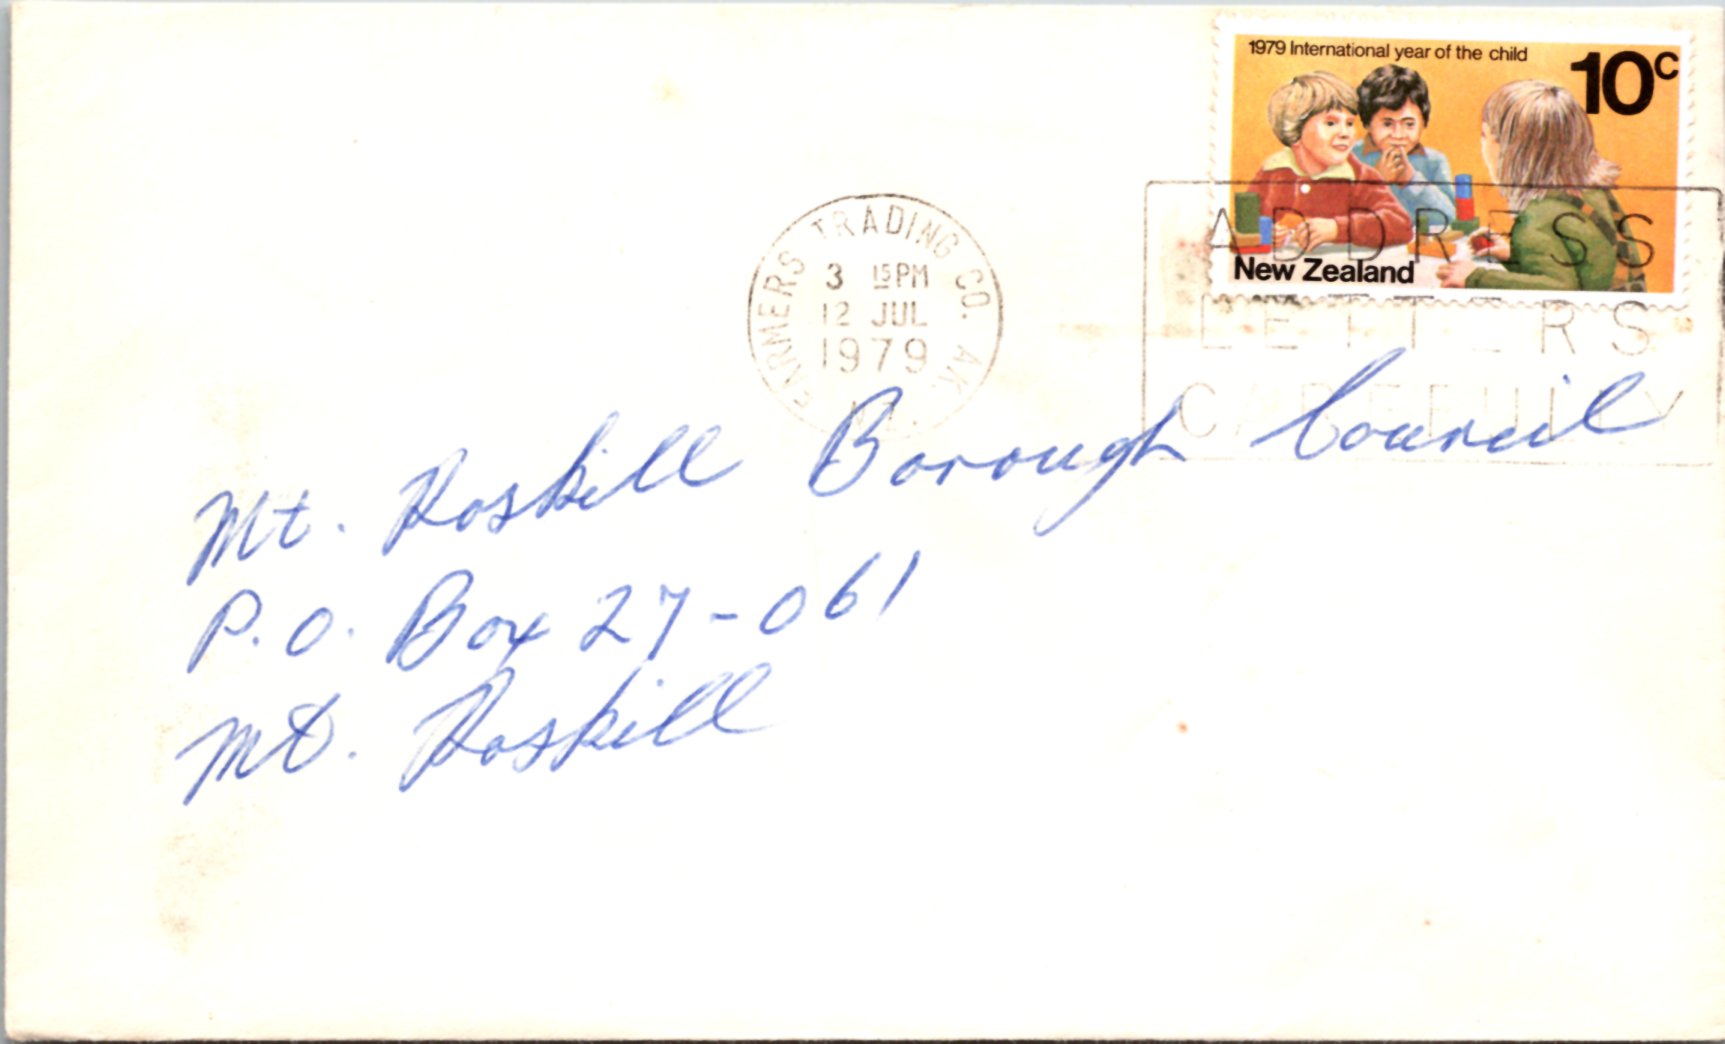 1979 International year of the child
10c
New Zealand
FARMERS TRADING CO. AK.
3 15PM
12 JUL
1979
ADDRESS
LETTERS
CAREFULLY
Mt. Roskill Borough Council
P.O. Box 27-061
Mt. Roskill